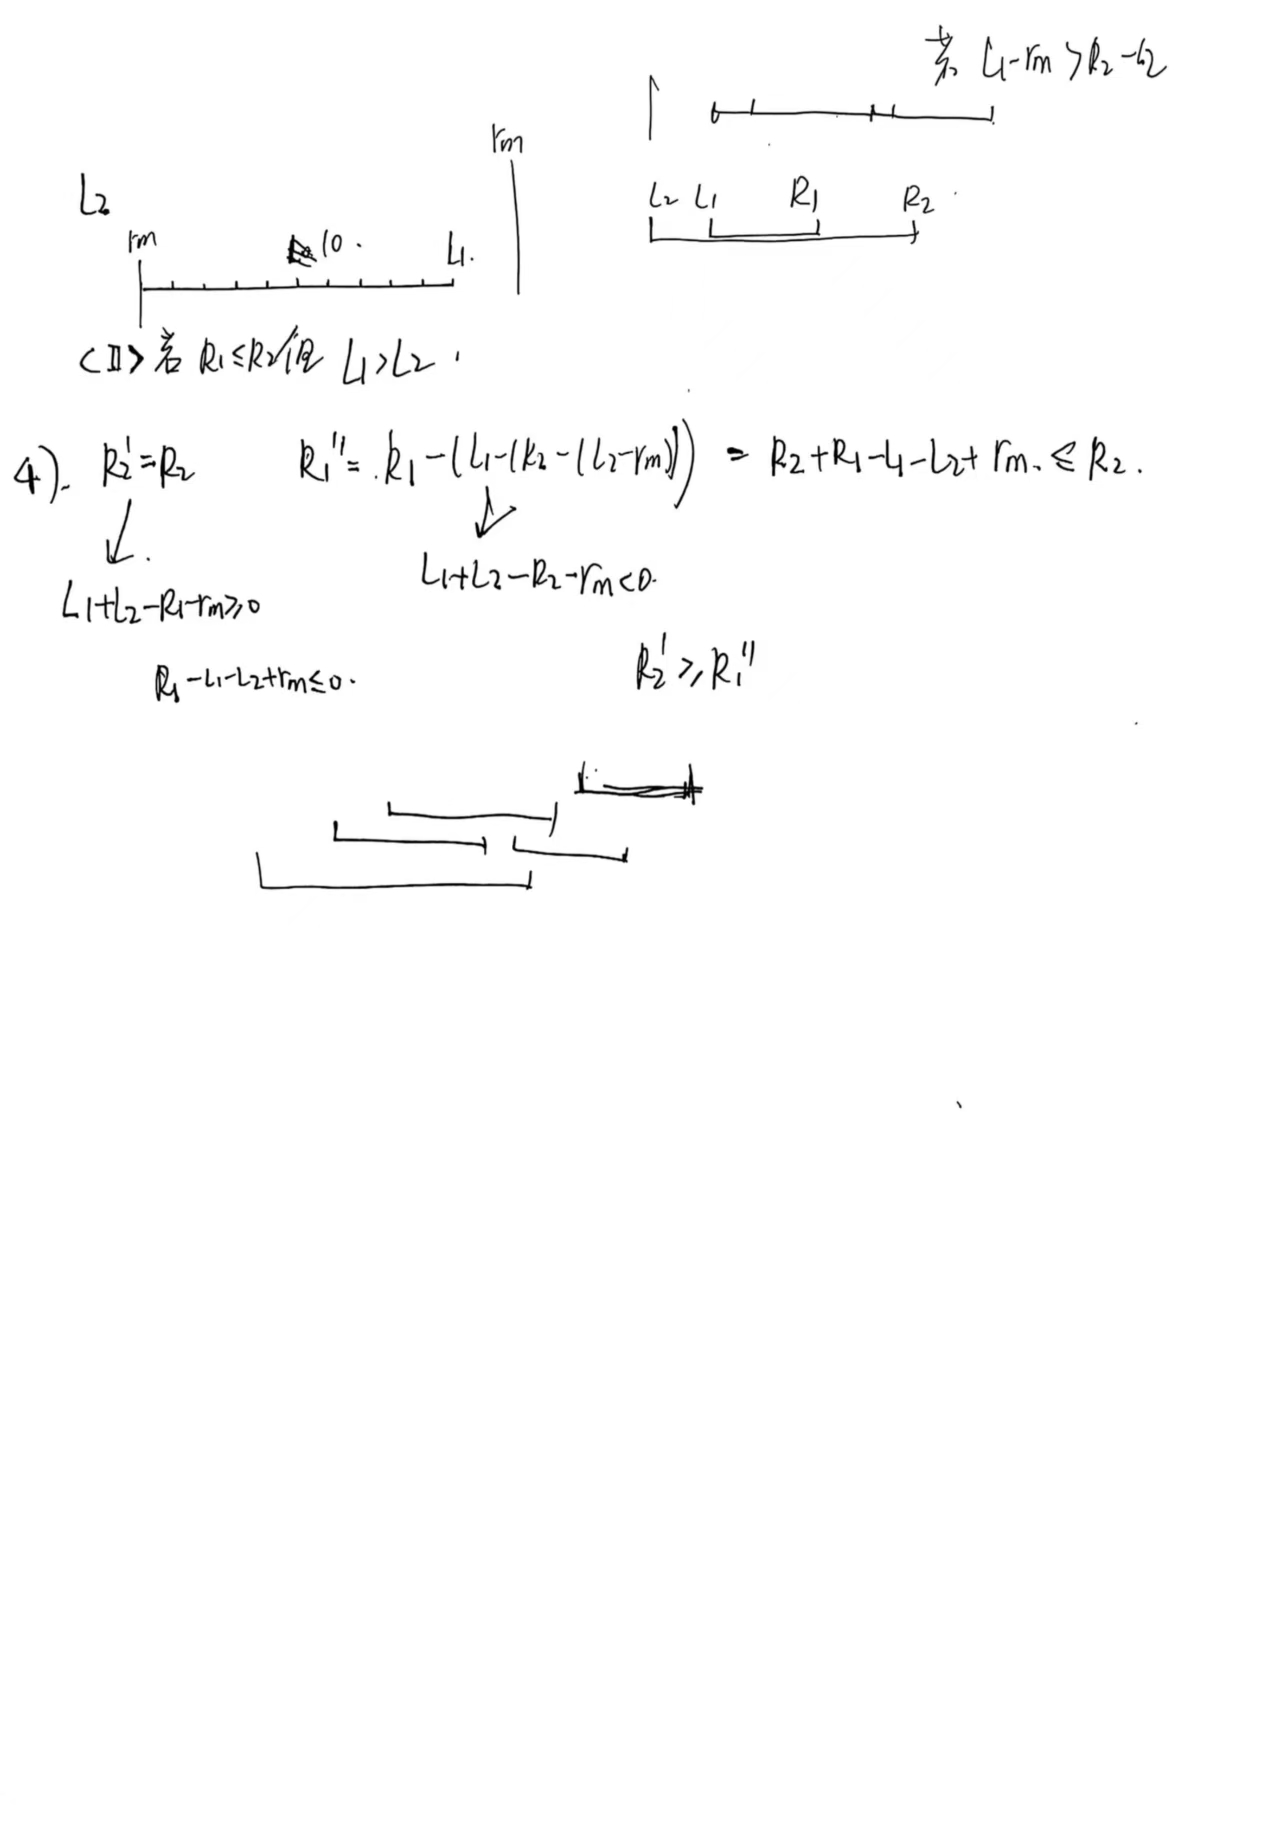 若 L₁-rm>R₂-L₂
rm
L₂
L₂ L₁ R₁ R₂
rm 10. L₁.
<Ⅱ>若 R₁≤R₂但 L₁>L₂.
4). R₂'=R₂ R₁''=R₁-(L₁-(R₂-(L₂-rm))) = R₂+R₁-L₁-L₂+rm.≤R₂.
L₁+L₂-R₂-rm<0.
L₁+L₂-R₁-rm≥0
R₂'≥R₁''
R₁-L₁-L₂+rm≤0.